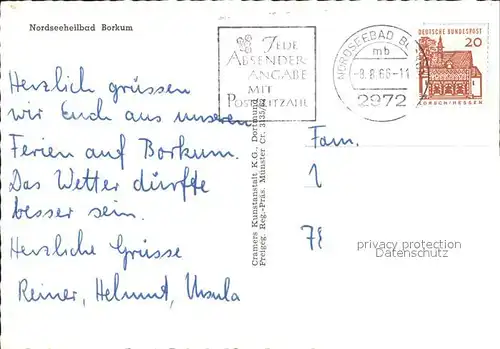 Nordseeheilbad Borkum
Herzlich grüssen
wir Euch aus unseren
Ferien auf Borkum.
Das Wetter dürfte
besser sein.
Herzliche Grüsse
Reiner, Helmut, Ursula
JEDE
ABSENDER-
ANGABE
MIT
POSTLEITZAHL
NORDSEEBAD BO
mb
-8.8.66-11
2972
DEUTSCHE BUNDESPOST
20
LORSCH/HESSEN
Cramers Kunstanstalt K.G., Dortmund
Freigeg. Reg.-Präs. Münster Cr.
Fam.
privacy protection
Datenschutz